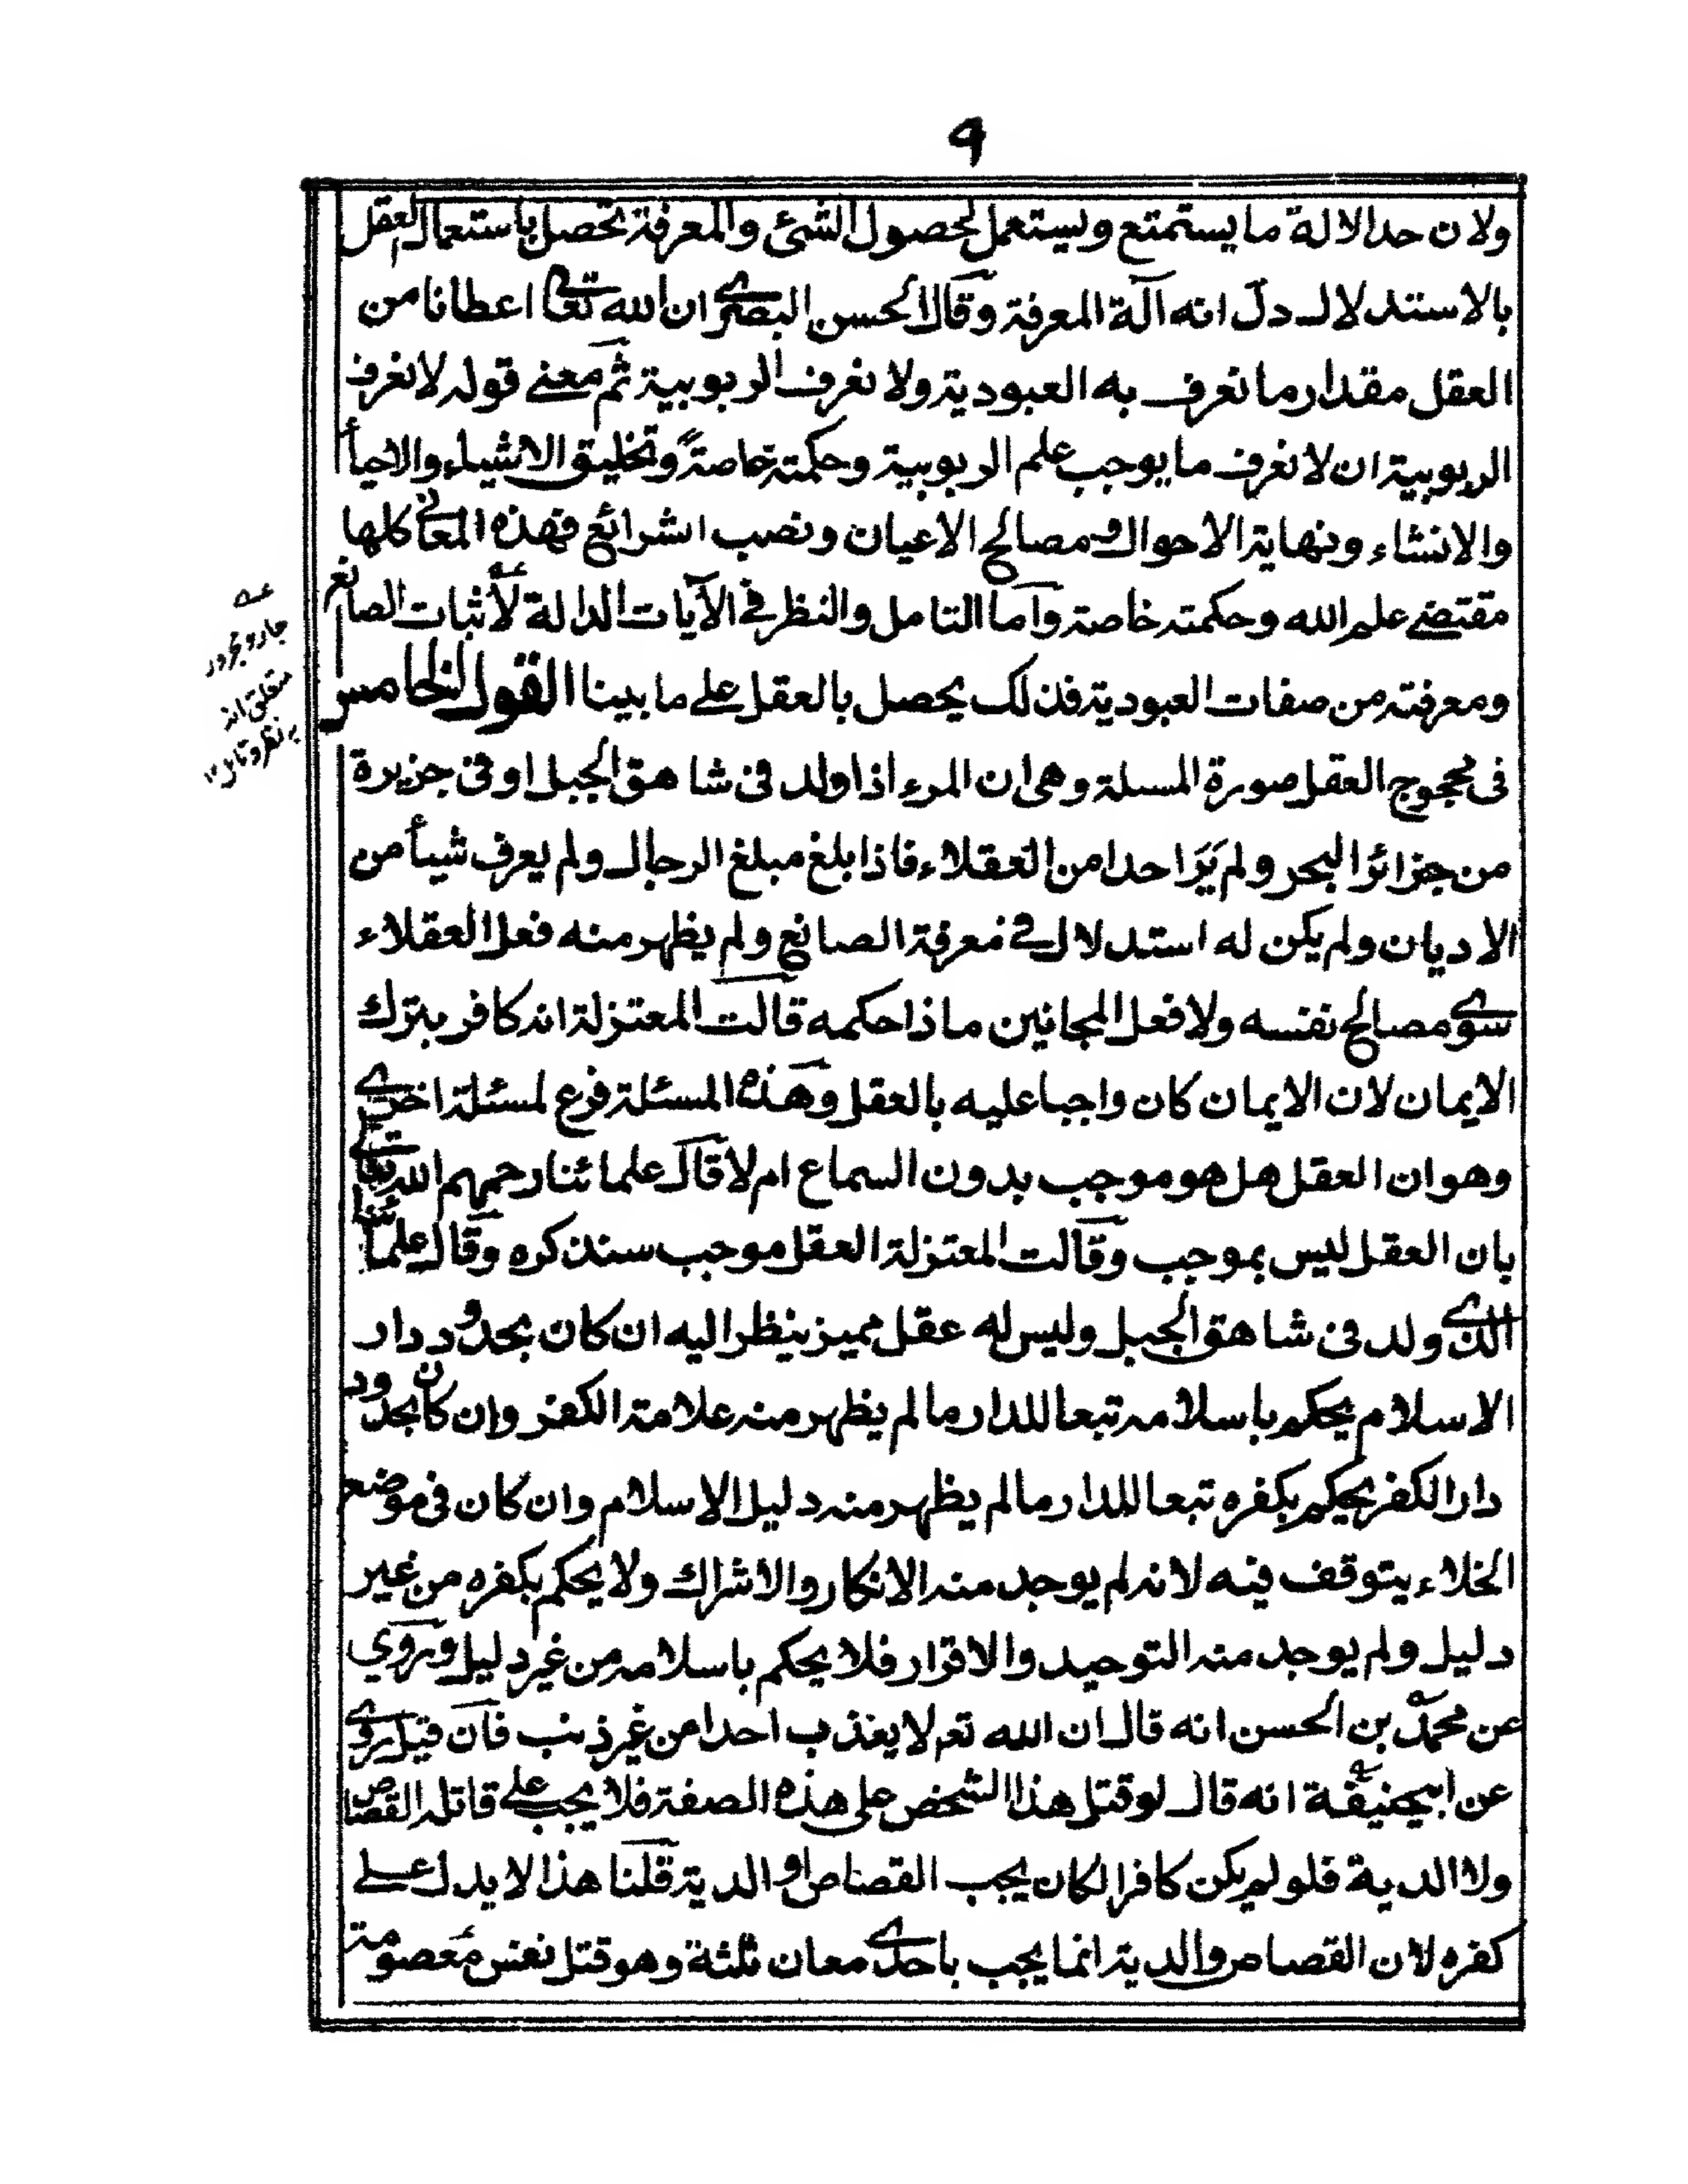 ٩
ولان حد الالة ما يستمتع ويستعمل لحصول الشئ والمعرفة تحصل باستعمال العقل
بالاستدلال دل انه آلة المعرفة وقال الحسن البصرى ان الله تعالى اعطانا من
العقل مقدار ما نعرف به العبودية ولا نعرف الربوبية ثم معنى قوله لا نعرف
الربوبية ان لا نعرف ما يوجب علم الربوبية وحكمته خاصةً وتخليق الاشياء والاحيأ
والانشاء ونهاية الاحوال ومصالح الاعيان ونصب الشرائع فهذه المعانى كلها
مقتضى علم الله وحكمته خاصة واما التامل والنظر فى الآيات الدالة لأثبات الصانع
ومعرفته من صفات العبودية فذلك يحصل بالعقل على ما بينا القول الخامس
فى محجوج العقل صورة المسلة وهى ان المرء اذا ولد فى شاهق الجبل او فى جزيرة
من جزائر البحر ولم يَرَ احدا من العقلاء فاذا بلغ مبلغ الرجال ولم يعرف شيأ من
الاديان ولم يكن له استدلال فى معرفة الصانع ولم يظهر منه فعل العقلاء
سوى مصالح نفسه ولا فعل المجانين ماذا حكمه قالت المعتزلة انه كافر بترك
الايمان لان الايمان كان واجبا عليه بالعقل وهذه المسئلة فرع لمسئلة اخرى
وهو ان العقل هل هو موجب بدون السماع ام لا قال علمائنا رحمهم الله تعالى
بان العقل ليس بموجب وقالت المعتزلة العقل موجب سنذكره وقال علمائنا
الذى ولد فى شاهق الجبل وليس له عقل مميز ينظر اليه ان كان بحدود دار
الاسلام يحكم باسلامه تبعا للدار ما لم يظهر منه علامة الكفر وان كان بحدود
دار الكفر يحكم بكفره تبعا للدار ما لم يظهر منه دليل الاسلام وان كان فى موضع
الخلاء يتوقف فيه لانه لم يوجد منه الانكار والاشراك ولا يحكم بكفره من غير
دليل ولم يوجد منه التوحيد والاقرار فلا يحكم باسلامه من غير دليل وروي
عن محمد بن الحسن انه قال ان الله تعم لا يعذب احدا من غير ذنب فان قيل روى
عن ابيحنيفة انه قال لو قتل هذا الشخص على هذه الصفة فلا يجب على قاتله القصاص
ولا الدية فلو لم يكن كافرا لكان يجب القصاص او الدية قلنا هذا لا يدل على
كفره لان القصاص والدية انما يجب باحدى معان ثلثة وهو قتل نفس معصومة
عه
جار ومجرور
متعلق اند
به نظر وتامل ١٢